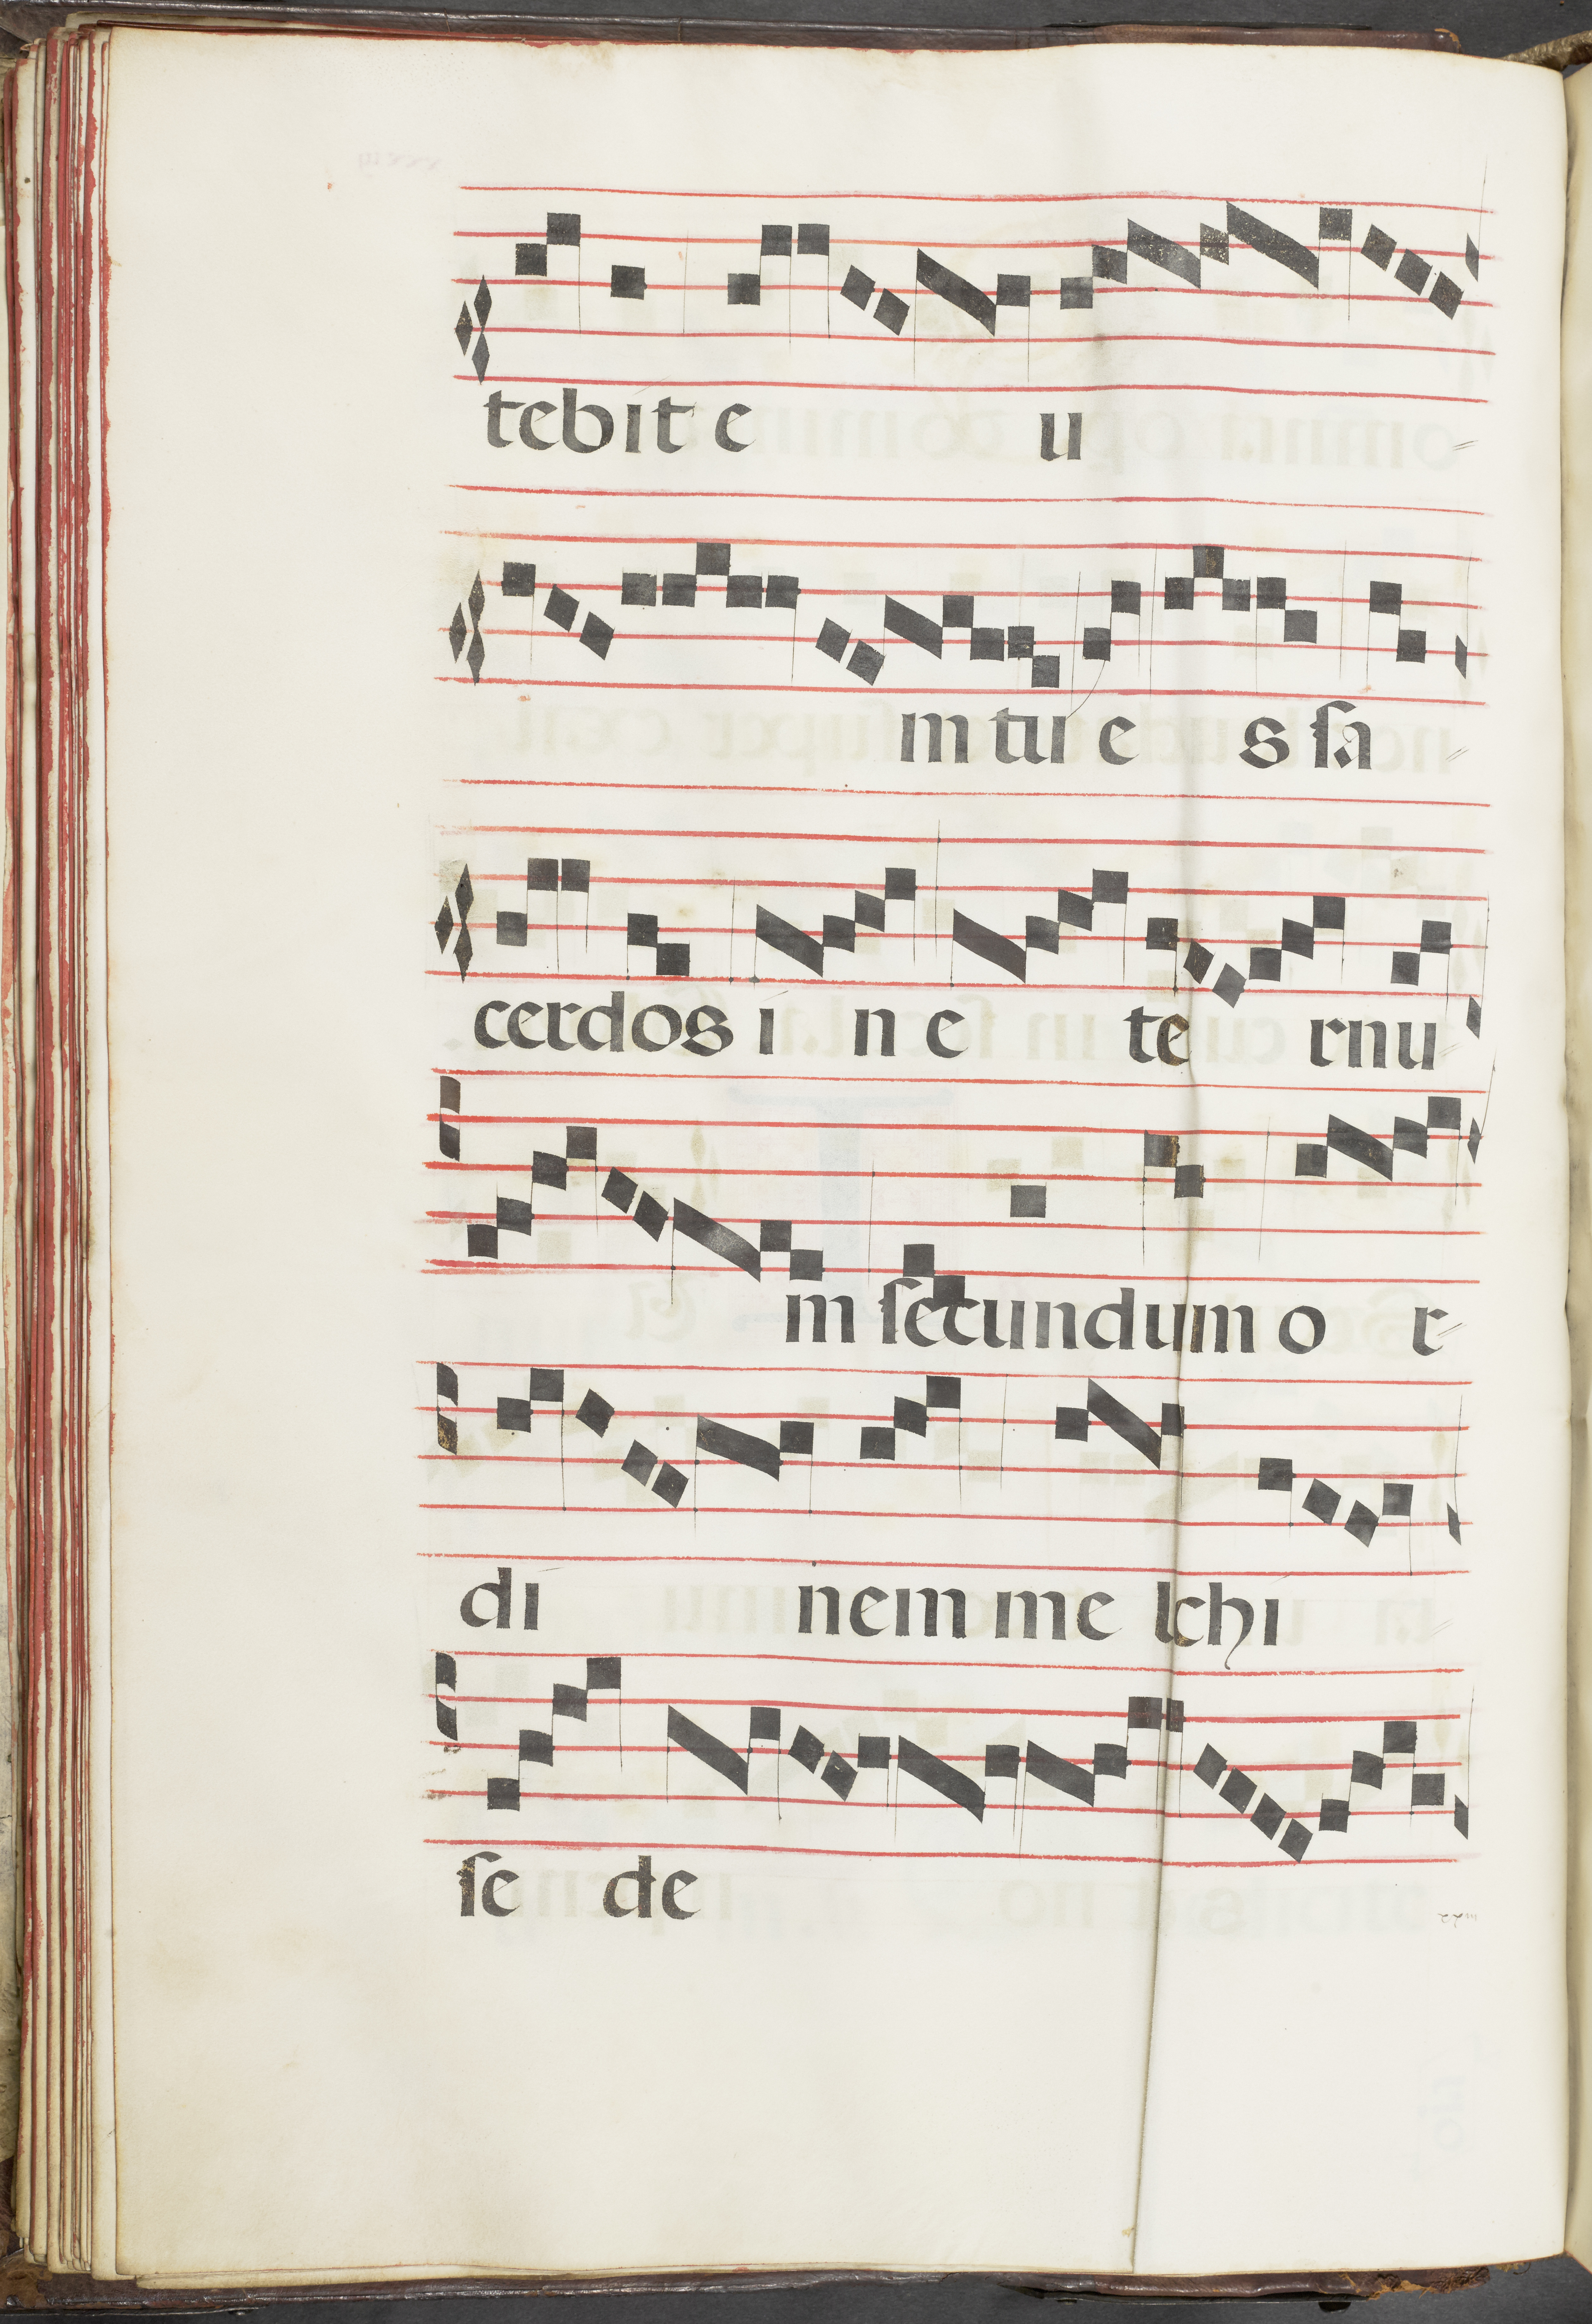 tebit e u
m tu e s sa
cerdos i n e te rnu
m secundum o r
di nem me lchi
se de